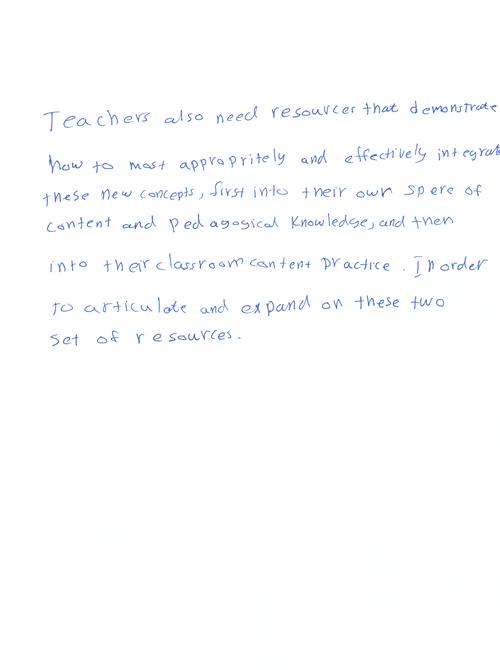 Teachers also need resources that demonstrate
how to most appropritely and effectively integrate
these new concepts, first into their own spere of
content and pedagogical knowledge, and then
into their classroom content practice. In order
to articulate and expand on these two
set of resources.